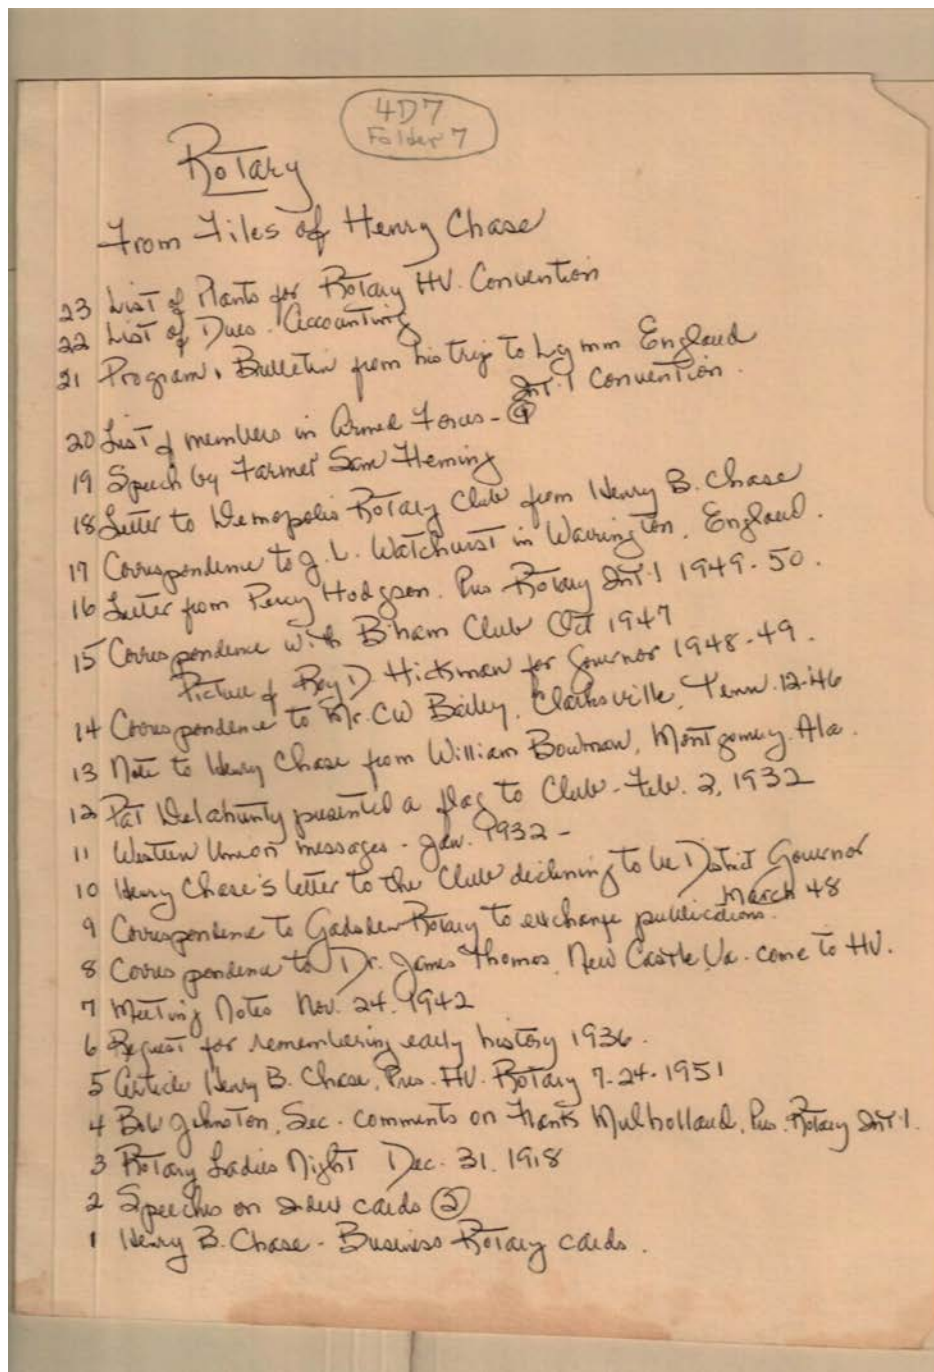 4D7
Folder 7
Rotary
From Files of Henry Chase
23 List of Plants for Rotary HV. Convention
22 List of Dues. Accounting
21 Program & Bulletin from his trip to Lymm England
Int'l Convention.
20 List of members in Armed Forces -
19 Speech by Farmer Sam Fleming
18 Letter to Demopolis Rotary Club from Henry B. Chase
17 Correspondence to J. L. Watchurst in Warrington, England.
16 Letter from Percy Hodgson. Pres Rotary Int'l 1949-50.
15 Correspondence with B'ham Club Oct 1947
Picture of Roy D Hickman for Governor 1948-49.
14 Correspondence to Mr. CW Bailey, Clarksville, Tenn. 12-46
13 Note to Henry Chase from William Bowman, Montgomery. Ala.
12 Pat Delahunty presented a flag to Club - Feb. 2, 1932
11 Western Union messages - Jan. 1932 -
10 Henry Chase's letter to the Club declining to be District Governor
March 48
9 Correspondence to Gadsden Rotary to exchange publications.
8 Correspondence to Dr. James Thomas, New Castle, Va. come to HV.
7 Meeting Notes Nov. 24, 1942
6 Request for remembering early history 1936.
5 Article Henry B. Chase, Pres. HV. Rotary 7-24-1951
4 Bob Johnston, Sec. comments on Frank Mulholland, Pres. Rotary Int'l.
3 Rotary Ladies Night Dec. 31, 1918
2 Speeches on index cards (2)
1 Henry B. Chase - Business Rotary cards.